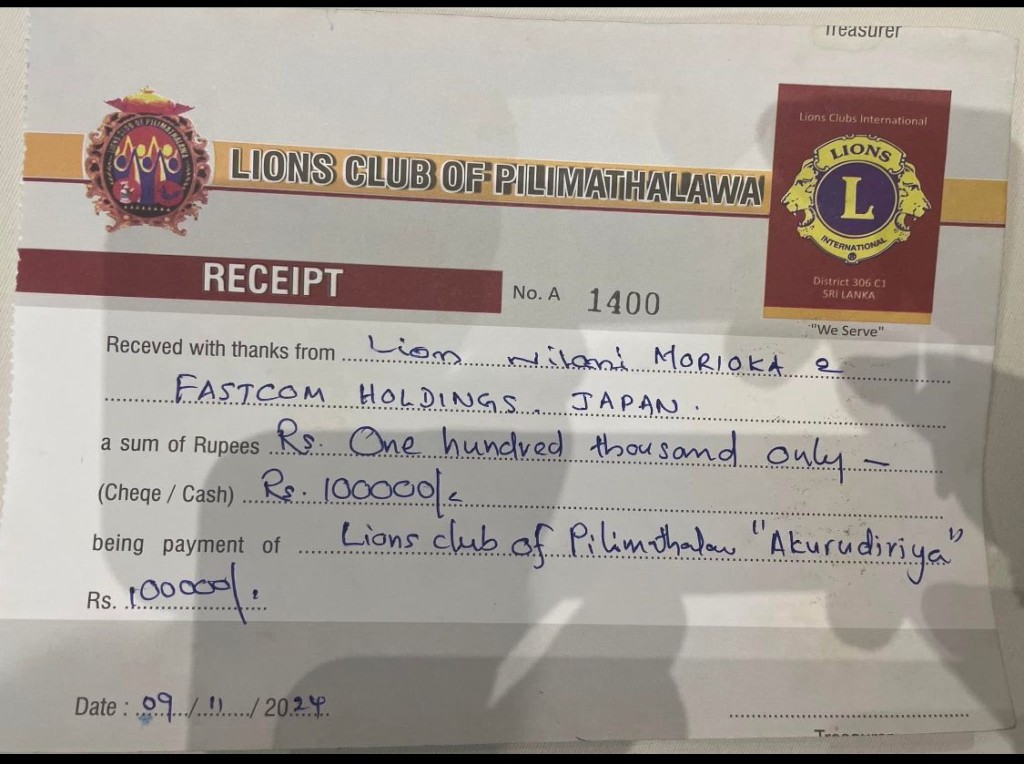 Treasurer
LIONS CLUB OF PILIMATHALAWA
Lions Clubs International
LIONS
L
INTERNATIONAL
District 306 C1
SRI LANKA
"We Serve"
RECEIPT
No. A 1400
Receved with thanks from Lion Nilani MORIOKA &
FASTCOM HOLDINGS. JAPAN.
a sum of Rupees Rs. One hundred thousand only —
(Cheqe / Cash) Rs. 100000/-
being payment of Lions club of Pilimathalaw "Akurudiriya"
Rs. 100000/.
Date : 09 / 11 / 2024
Treasurer